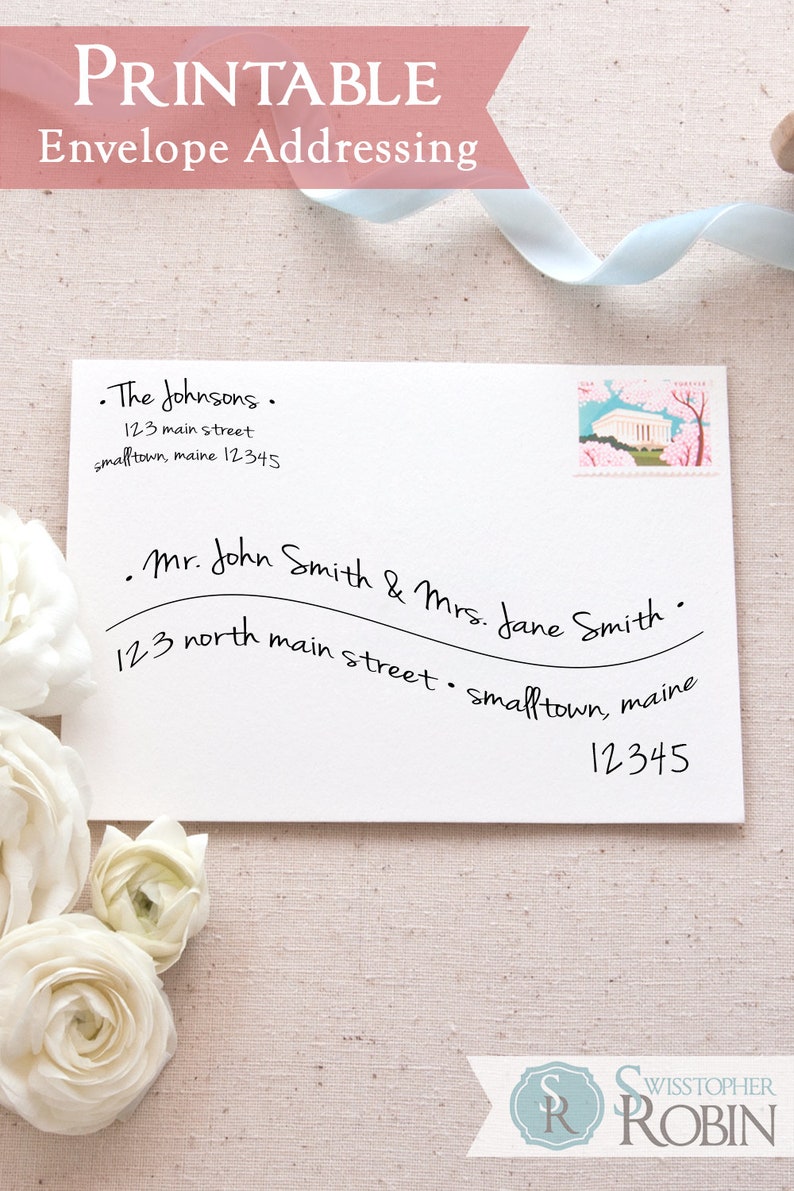 Printable
Envelope Addressing
• The Johnsons •
123 main street
smalltown, maine 12345
USA FOREVER
• Mr. John Smith & Mrs. Jane Smith •
123 north main street • smalltown, maine
12345
SR
Swisstopher
Robin